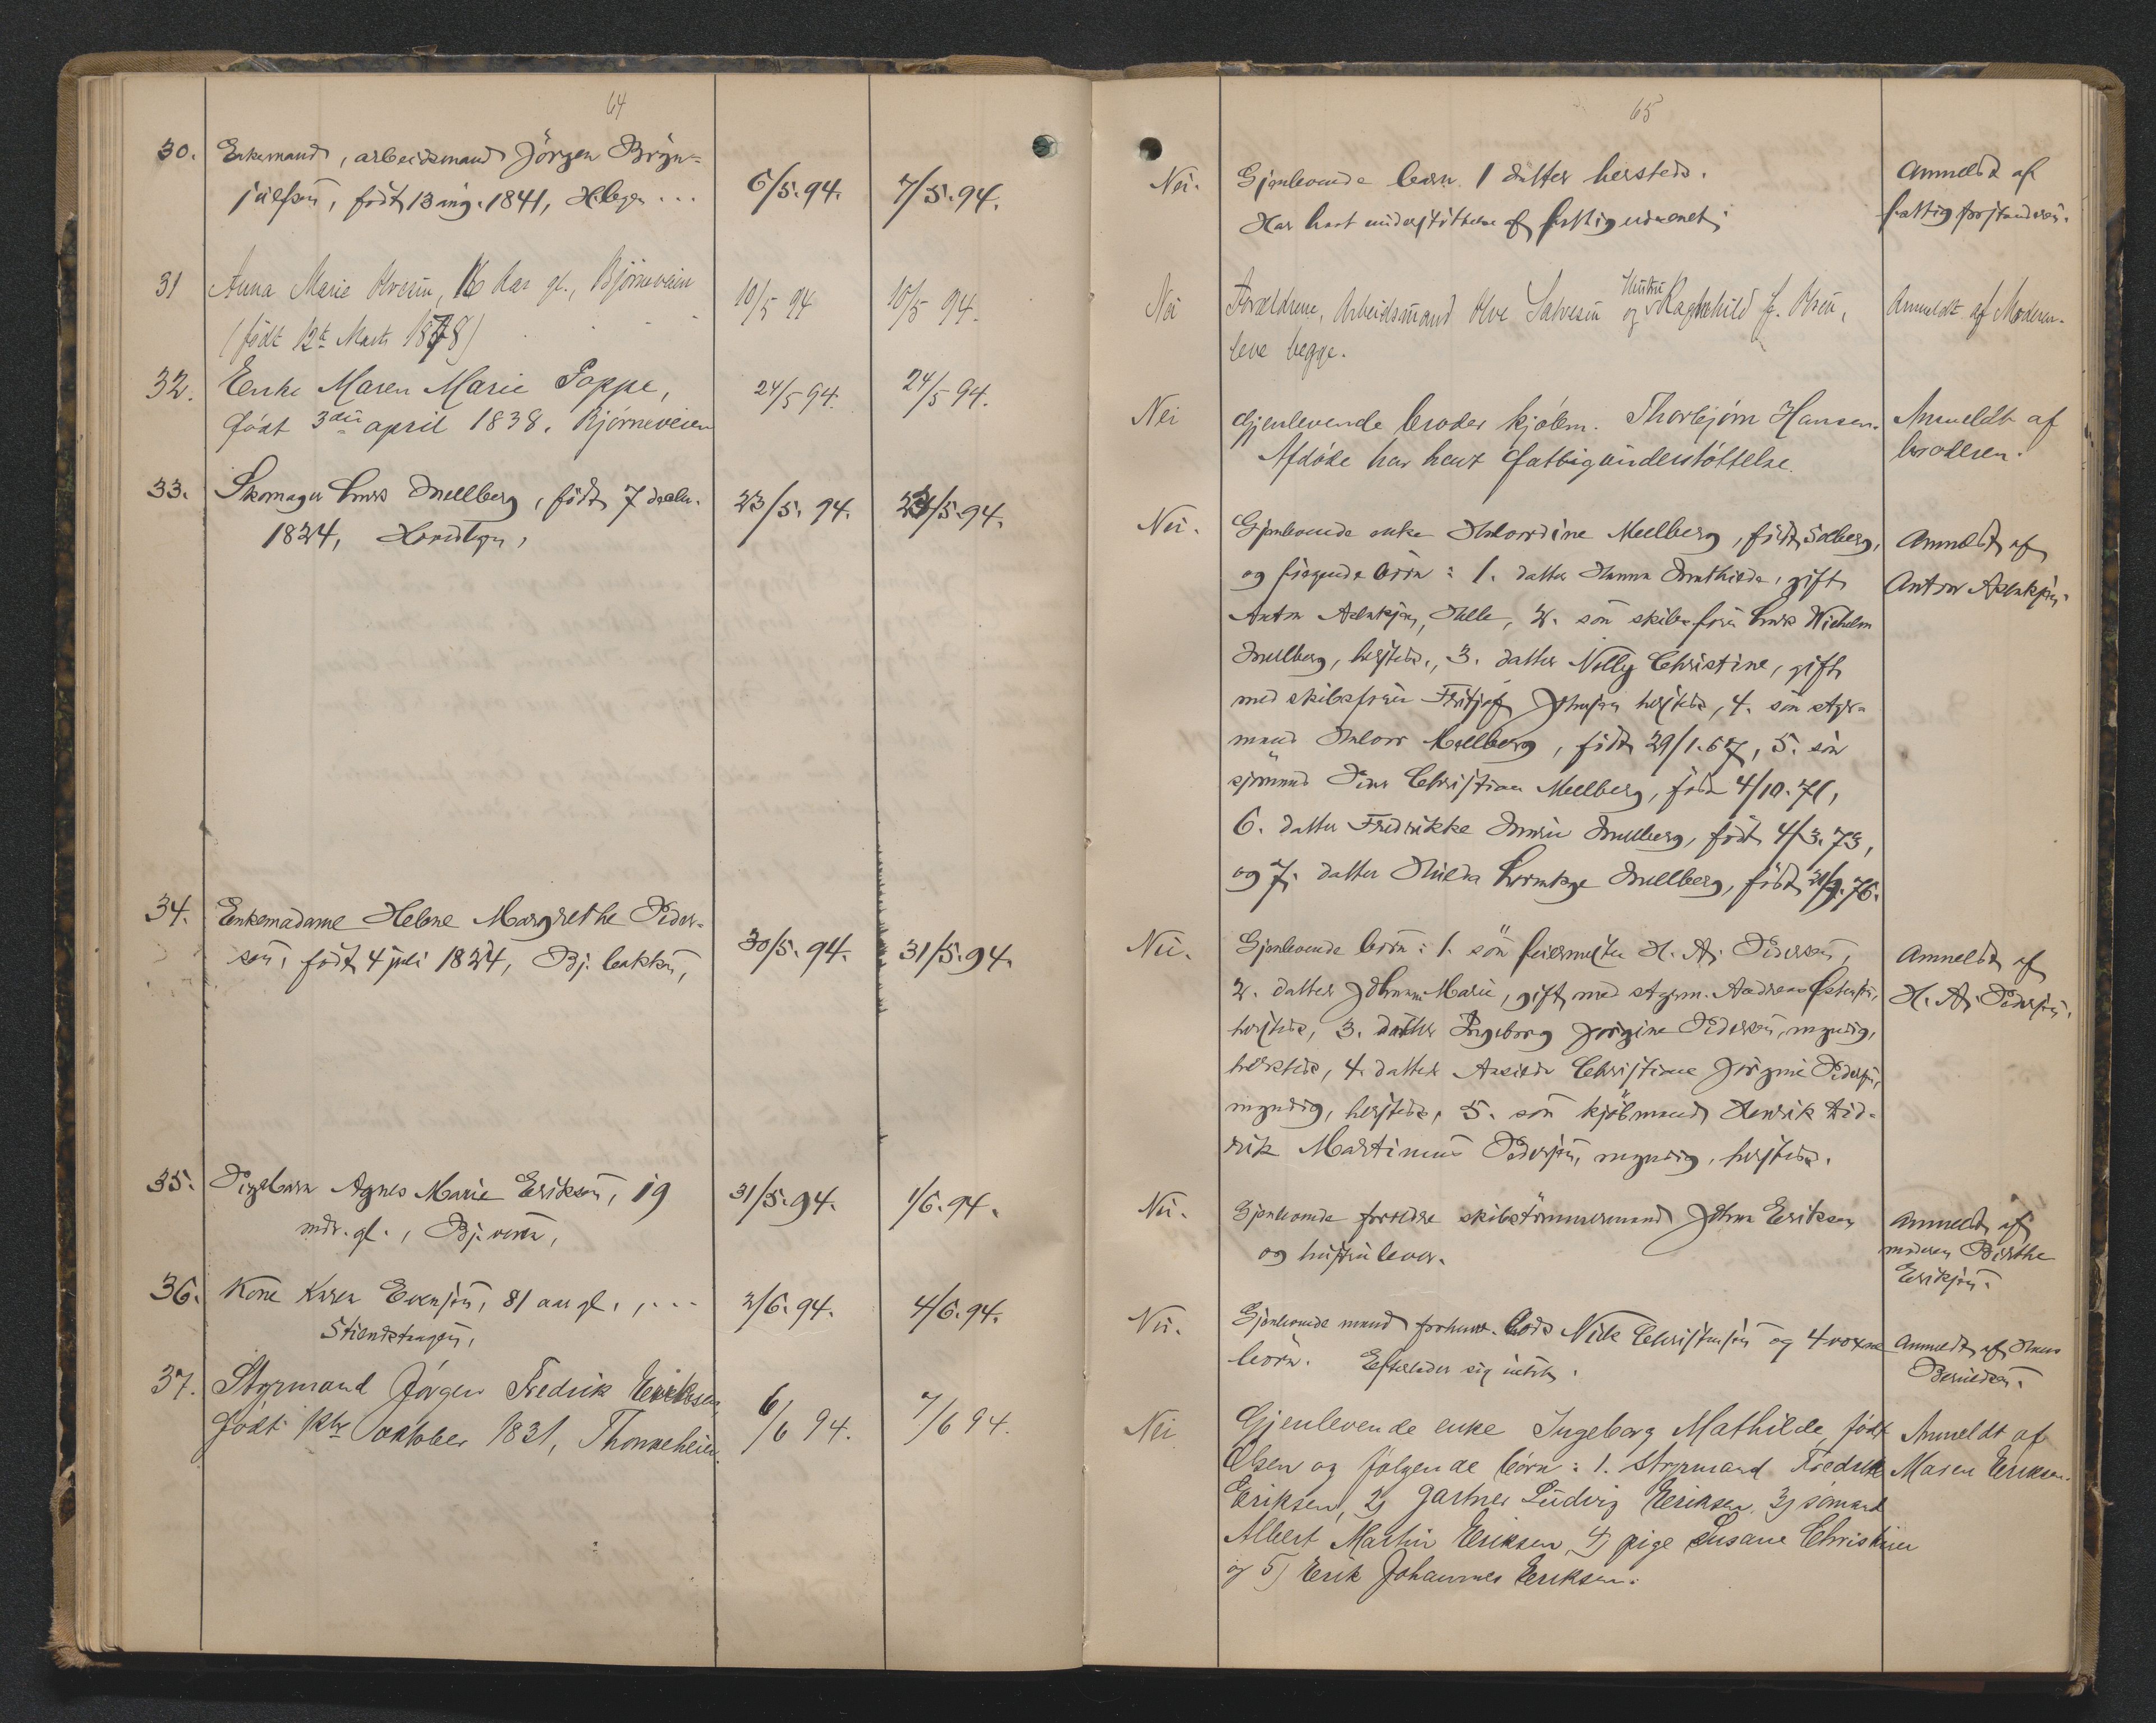 64
30. Enkemand, arbeidsmand Jörgen Bryn=
julfsen, födt 13 aug. 1841, 6/5. 94. 7/5. 94.
31 Anna Marie Olvesen, 16 Aar gl., Bjørneveien 10/5 94 10/5 94.
(født 12te Marts 1878)
32. Enke Maren Marie Poppe, 24/5 94. 24/5 94.
født 3die april 1838. Bjørneveien
33. Skomager Mellberg, födt 7 1824, 23/5. 94. 5.94.
34. Enkemadame Helene Margrethe Peder-
sen, födt 4 juli 1824, Bj. bakken, 30/5. 94. 31/5. 94.
35. Pigebarn Agnes Marie Eriksen, 19 31/5. 94. 1/6. 94.
mdr. gl., Bj. veien,
36. Kone Karen Evensen, 81 aar gl., 2/6. 94. 4/6. 94.
37. Styrmand Jørgen Fredrik Eriksen, 6/6 94. 7/6 94.
født oktober 1831,
65
Nei. Gjenlevende barn 1 datter hersteds. Anmeldt af
Har havt understöttelse af fattigvæsenet. fattigforstanderen.
Nei Forældrene, Arbeidsmand Olve Salvesen og Hustru Ragnhild f. Olsen, Anmeldt af Moderen.
leve begge.
Nei Gjenlevende broder kjøbm. Thorbjørn Hansen. Anmeldt af
Afdøde har havt fattigunderstøttelse. broderen.
Nei. Gjenlevende enke Mellberg, födt Solberg, Anmeldt af
og fölgende börn: 1. datter Hanna Mathilde, gift Anton
Anton 2. sön skibsförer Wilhelm
Mellberg, hersteds, 3. datter Nelly Christine, gift
med skibsförer Fritjof Johnsen hersteds, 4. sön styr-
mand Halvor Mellberg, födt 29/1. 67, 5. sön
sjömand Peder Christian Mellberg, födt 4/10. 71,
6. datter Fredrikke Marie Mellberg, födt 4/3. 73,
og 7. datter Hilda Mellberg, födt 76.
Nei. Gjenlevende börn: 1. sön feiermester H. A. Pedersen, Anmeldt af
2. datter Johanne Marie, gift med styrm. Andreas H. A. Pedersen.
hersteds, 3. datter Ingeborg Jörgine Pedersen, myndig,
hersteds, 4. datter Christiane Jörgine Pedersen,
myndig, hersteds, 5. sön kjöbmand Henrik Did-
rik Martinius Pedersen, myndig, hersteds.
Nei. Gjenlevende forældre skibstömmermand Johan Eriksen Anmeldt af
og hustru lever. moderen Birthe
Eriksen.
Nei. Gjenlevende mand forhenv. Nils Christensen og 4 voxne Anmeldt af
börn. Efterlader sig intet.
Nei Gjenlevende enke Ingeborg Mathilde, født Anmeldt af
Olsen og følgende børn: 1. Styrmand Fredrik Maren Eriksen.
Eriksen, 2) gartner Ludvig Eriksen, 3) sømand
Albert Martin Eriksen, 4) pige Susane Christine
og 5) Erik Johannes Eriksen.